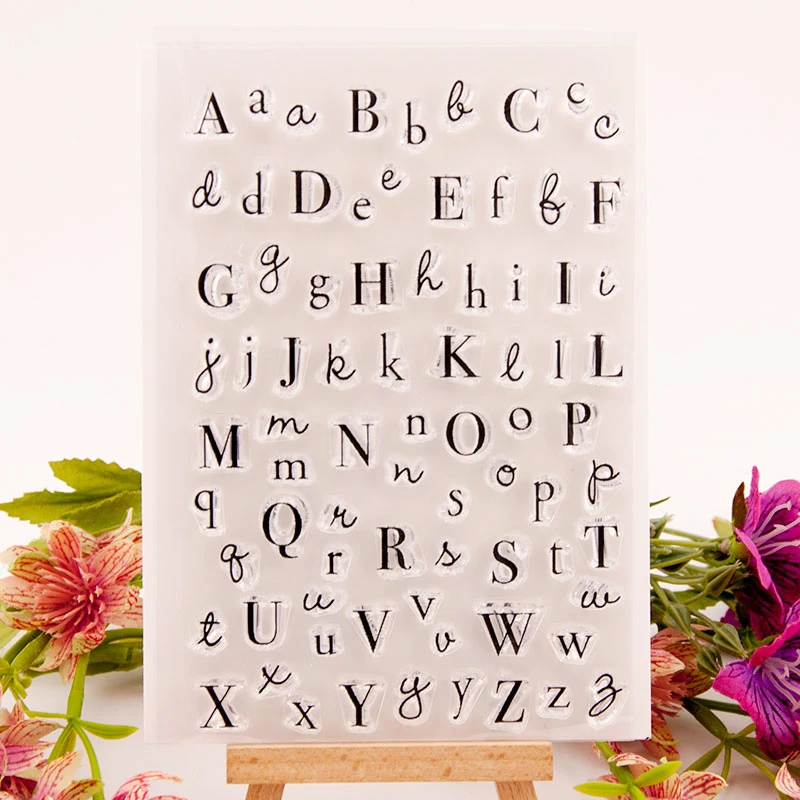 A a a B b b C c c
d d D e e E f f F
G g g H h h i I i
j j J k k K l l L
M m m N n n O o o P
q Q r s o p p
q r R s S t T
t U u u V v v W w w
X x x Y y y Z z z